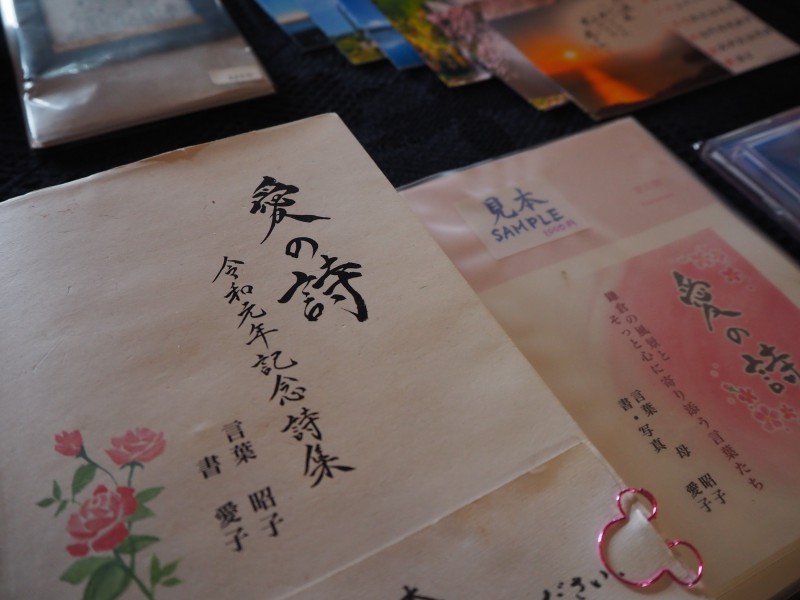 愛の詩
令和元年記念詩集
言葉 昭子
書 愛子
見本
SAMPLE
1000円
愛の詩
鎌倉の風景と
そっと心に寄り添う言葉たち
言葉 母 昭子
書・写真 愛子
ださい。